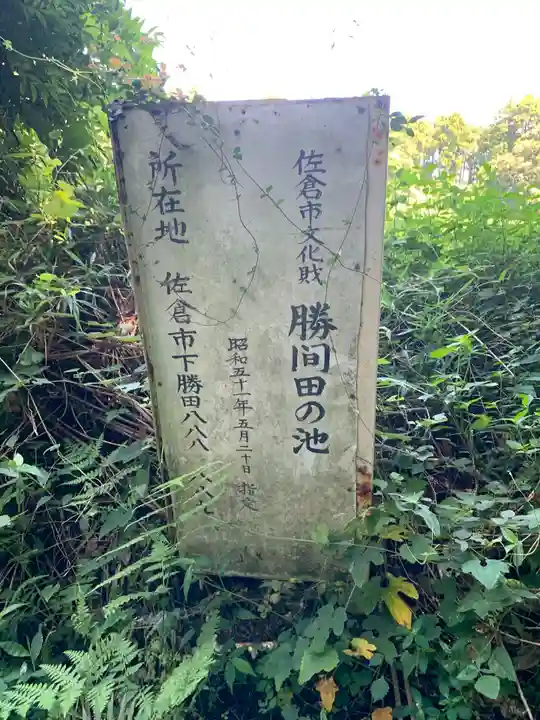 佐倉市文化財 勝間田の池
昭和五十一年五月二十日 指定
所在地 佐倉市下勝田八八八